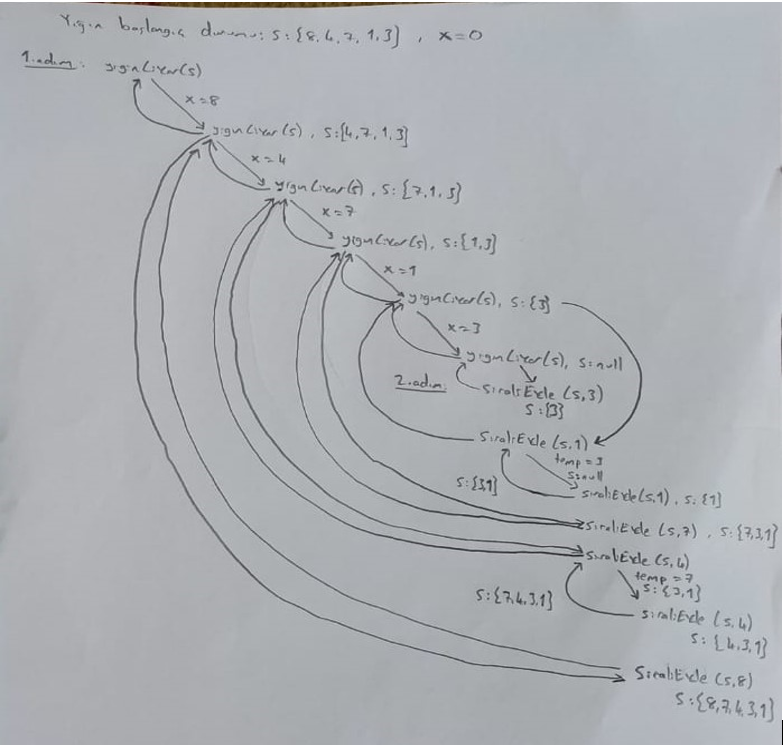 Yığın başlangıç durumu: S:{8,4,7,1,3} , x=0
1.adım: yiginCixar(s)
x=8
yiginCixar(s), S:{4,7,1,3}
x=4
yiginCixar(s), S:{7,1,3}
x=7
yiginCixar(s), S:{1,3}
x=1
yiginCixar(s), S:{3}
x=3
yiginCixar(s), S:null
2.adım: SiraliEkle (s,3)
S:{3}
SiraliEkle (s,1)
temp=3
S:null
S:{3,1}
SiraliEkle(s,1), S:{1}
SiraliEkle (s,7), S:{7,3,1}
SiraliEkle (s,4)
temp=7
S:{3,1}
S:{7,4,3,1}
SiraliEkle (s,4)
S:{4,3,1}
SiraliEkle (s,8)
S:{8,7,4,3,1}